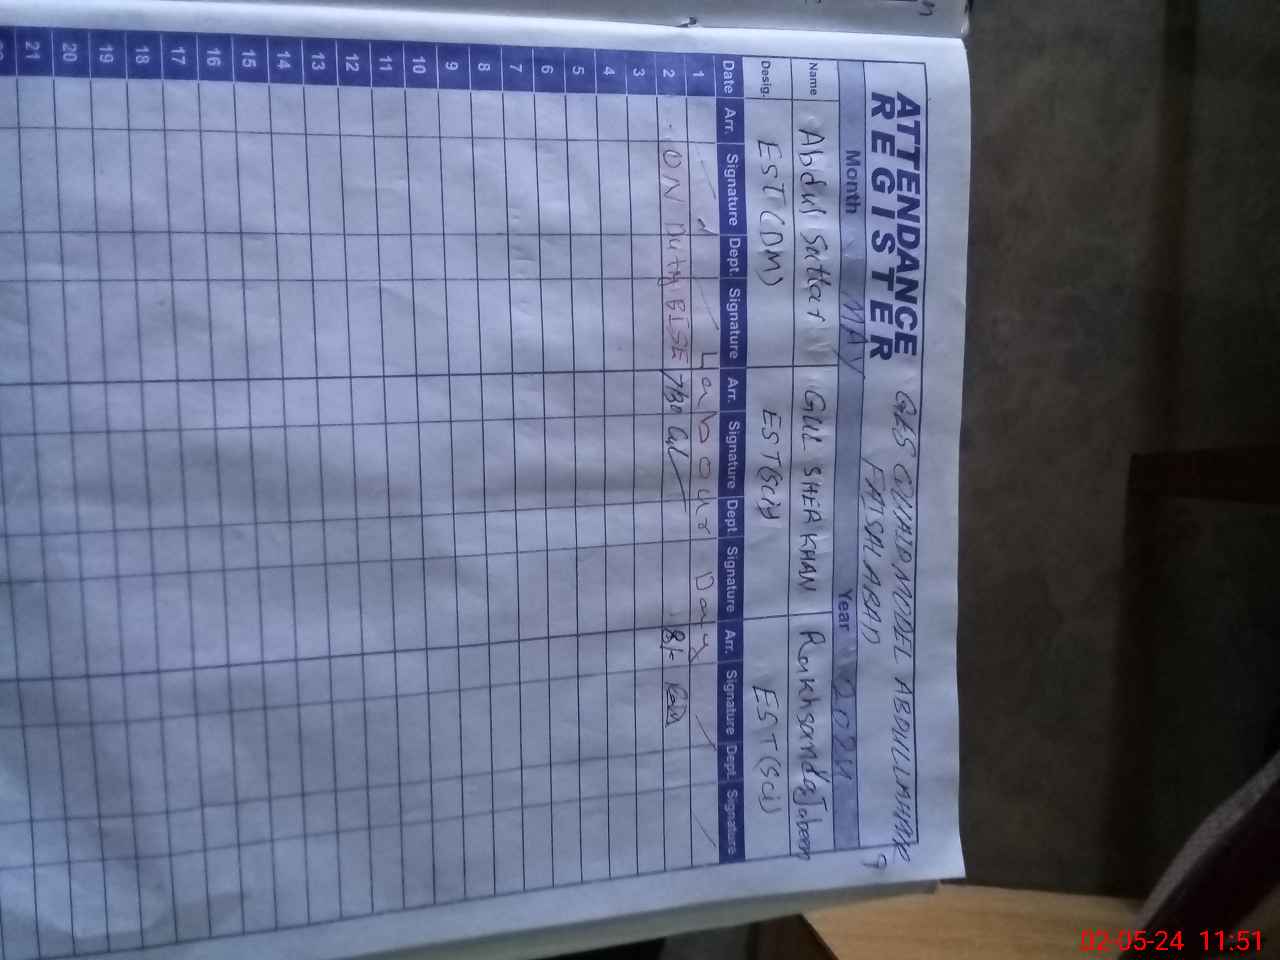 ATTENDANCE
REGISTER
GES QUAID MODEL ABDULLAHPUR
FAISALABAD
9
Month MAY Year 2024
Name Abdul Sattar GUL SHER KHAN Rakhsanda Jabeen
Desig. EST(DM) EST(Sci) EST(Sci)
Date Arr. Signature Dept. Signature Arr. Signature Dept. Signature Arr. Signature Dept. Signature
1 Labour Day
2 ON Duty BISE 7/30 8/-
3
4
5
6
7
8
9
10
11
12
13
14
15
16
17
18
19
20
21
02-05-24 11:51